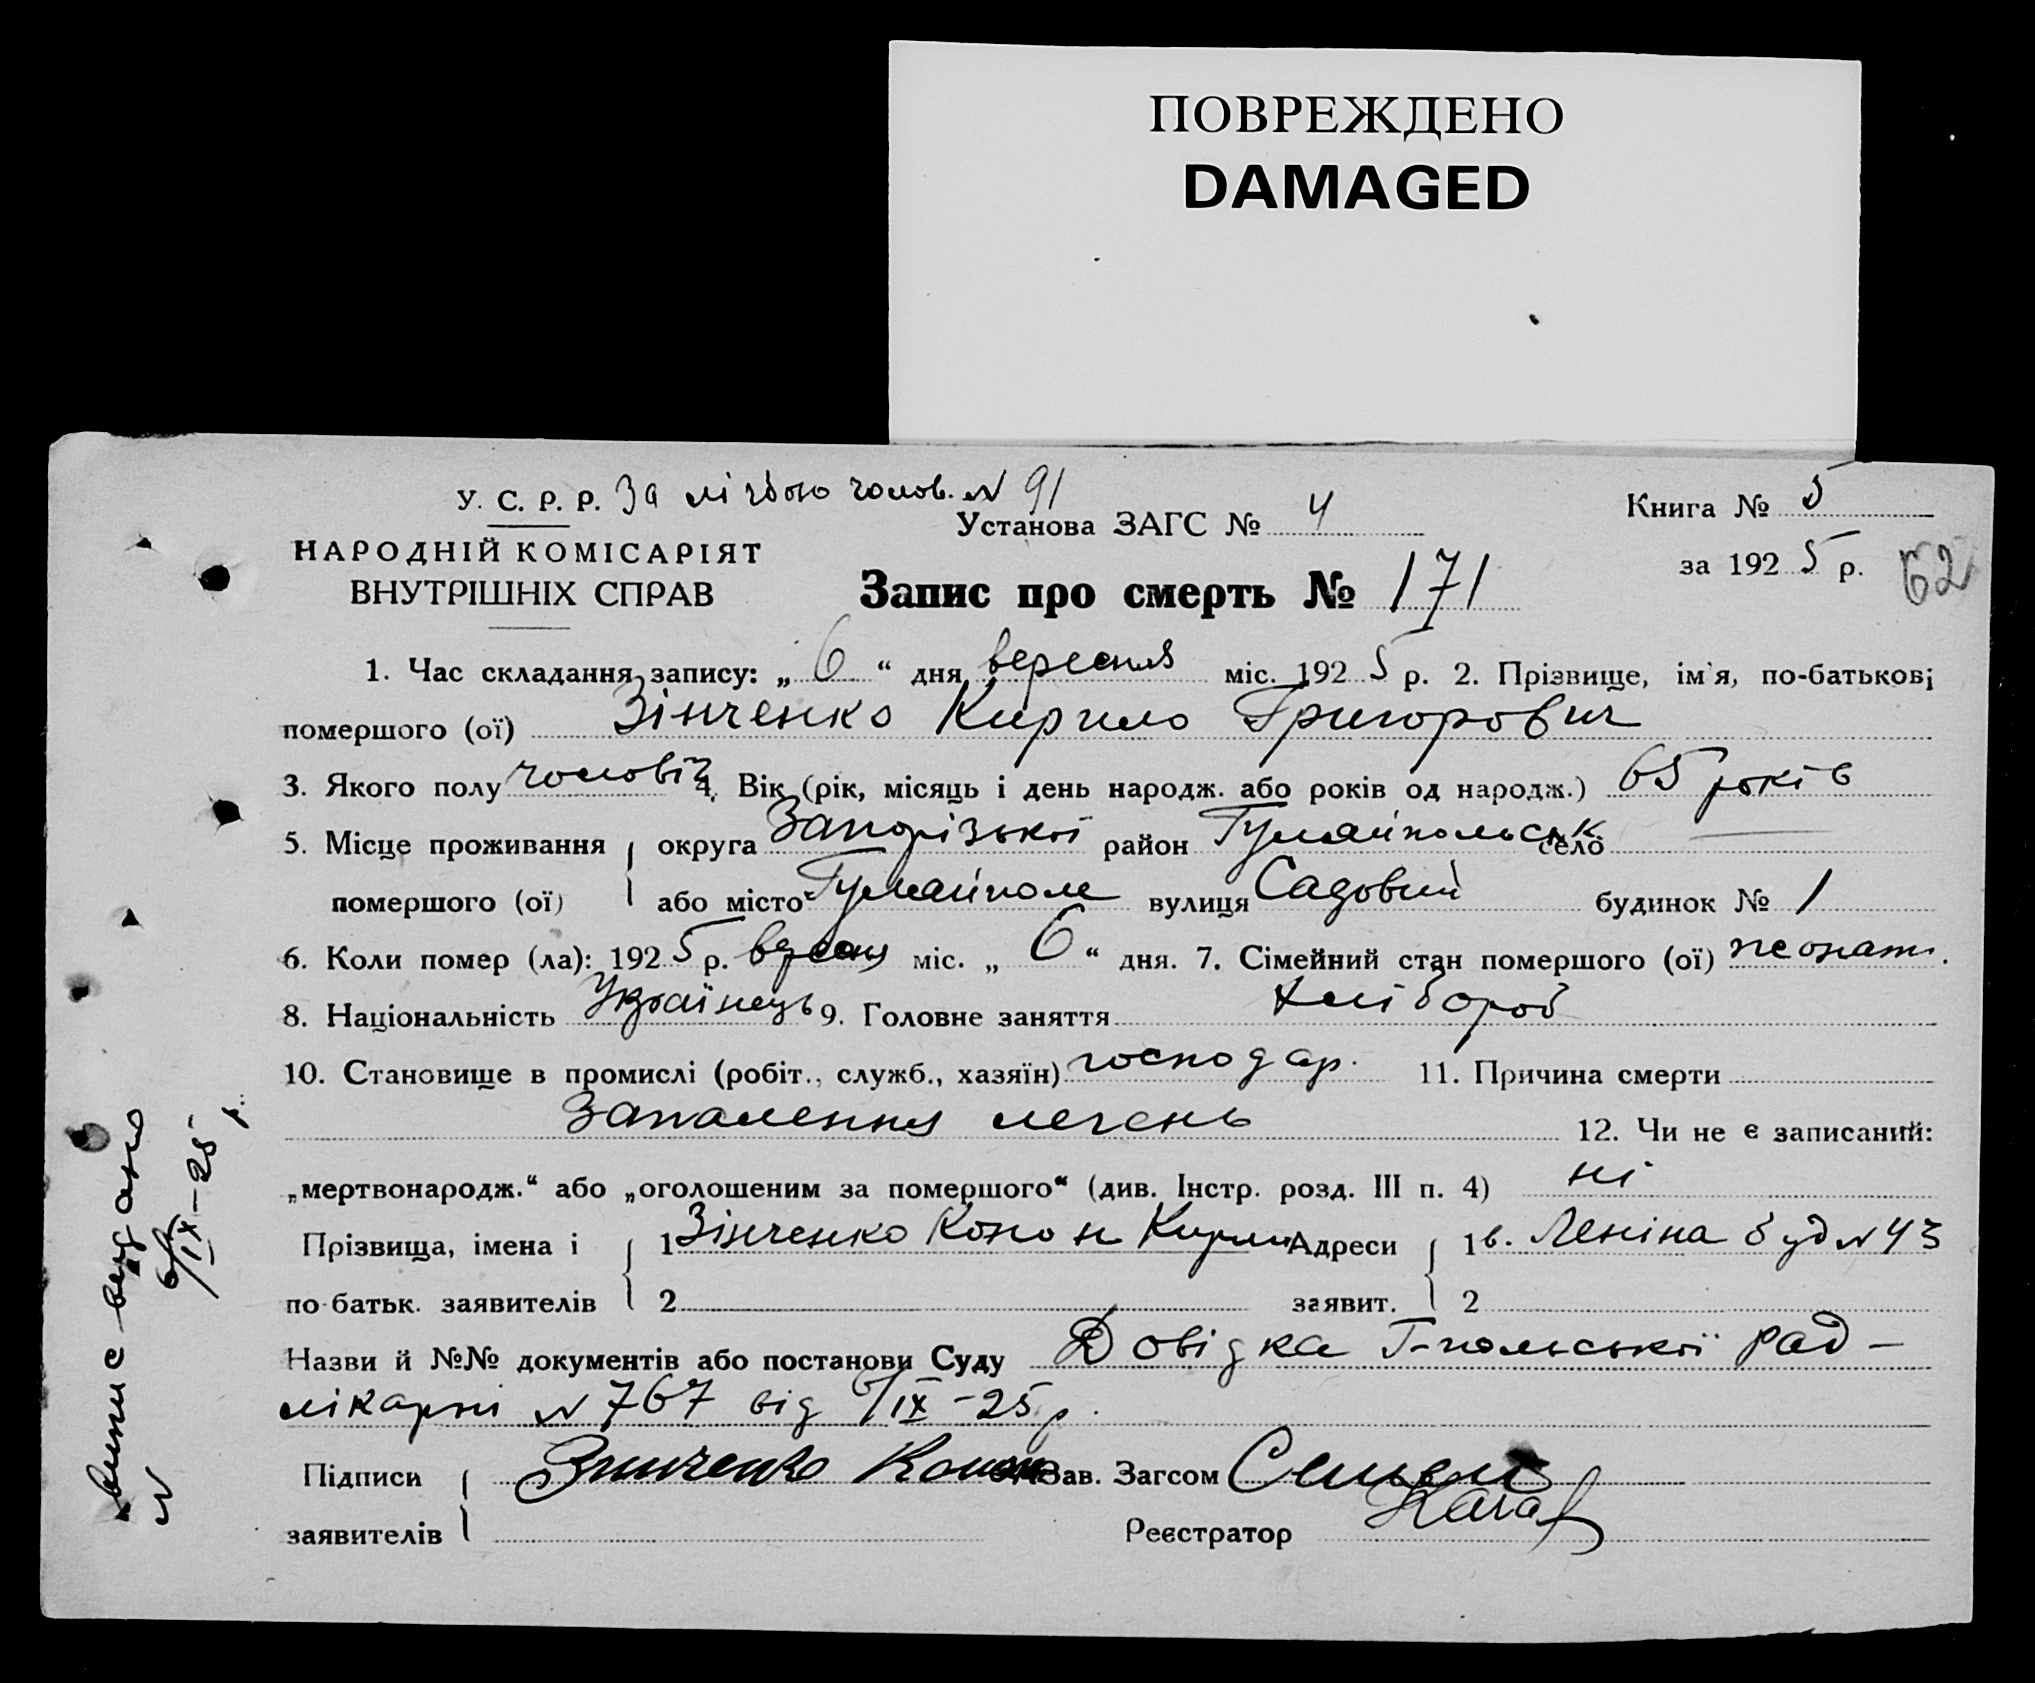 ПОВРЕЖДЕНО
DAMAGED
У. С. Р. Р. За лічбою чолов. № 91
Установа ЗАГС № 4
Книга № 5
НАРОДНІЙ КОМІСАРІЯТ
ВНУТРІШНІХ СПРАВ
за 1925 р.
62
Запис про смерть № 171
1. Час складання запису: „ 6 “ дня вересня міс. 1925 р. 2. Прізвище, ім'я, по-батькові
помершого (ої) Зінченко Кирило Григорович
3. Якого полу чоловіч. 4. Вік (рік, місяць і день народж. або років од народж.) 65 років
5. Місце проживання округа Запорізької район Гуляйпольськ. село
помершого (ої) або місто Гуляйполе вулиця Садовий будинок № 1
6. Коли помер (ла): 1925 р. вересня міс. „ 6 “ дня. 7. Сімейний стан помершого (ої)
8. Національність Українець 9. Головне заняття Хлібороб
10. Становище в промислі (робіт., служб., хазяїн) господар. 11. Причина смерти
Запалення легень 12. Чи не є записаний:
„мертвонародж.“ або „оголошеним за помершого“ (див. Інстр. розд. III п. 4) ні
Прізвища, імена і 1 Зінченко Конон Кирил Адреси 1 в. Леніна буд № 43
по-батьк. заявителів 2 заявит. 2
Назви й №№ документів або постанови Суду Довідка Г-польської рад-
лікарні № 767 від 6/IX-25 р.
Підписи Зинченко Конон Зав. Загсом
заявителів Реєстратор
Випис видано
№ 6/IX-25 р.